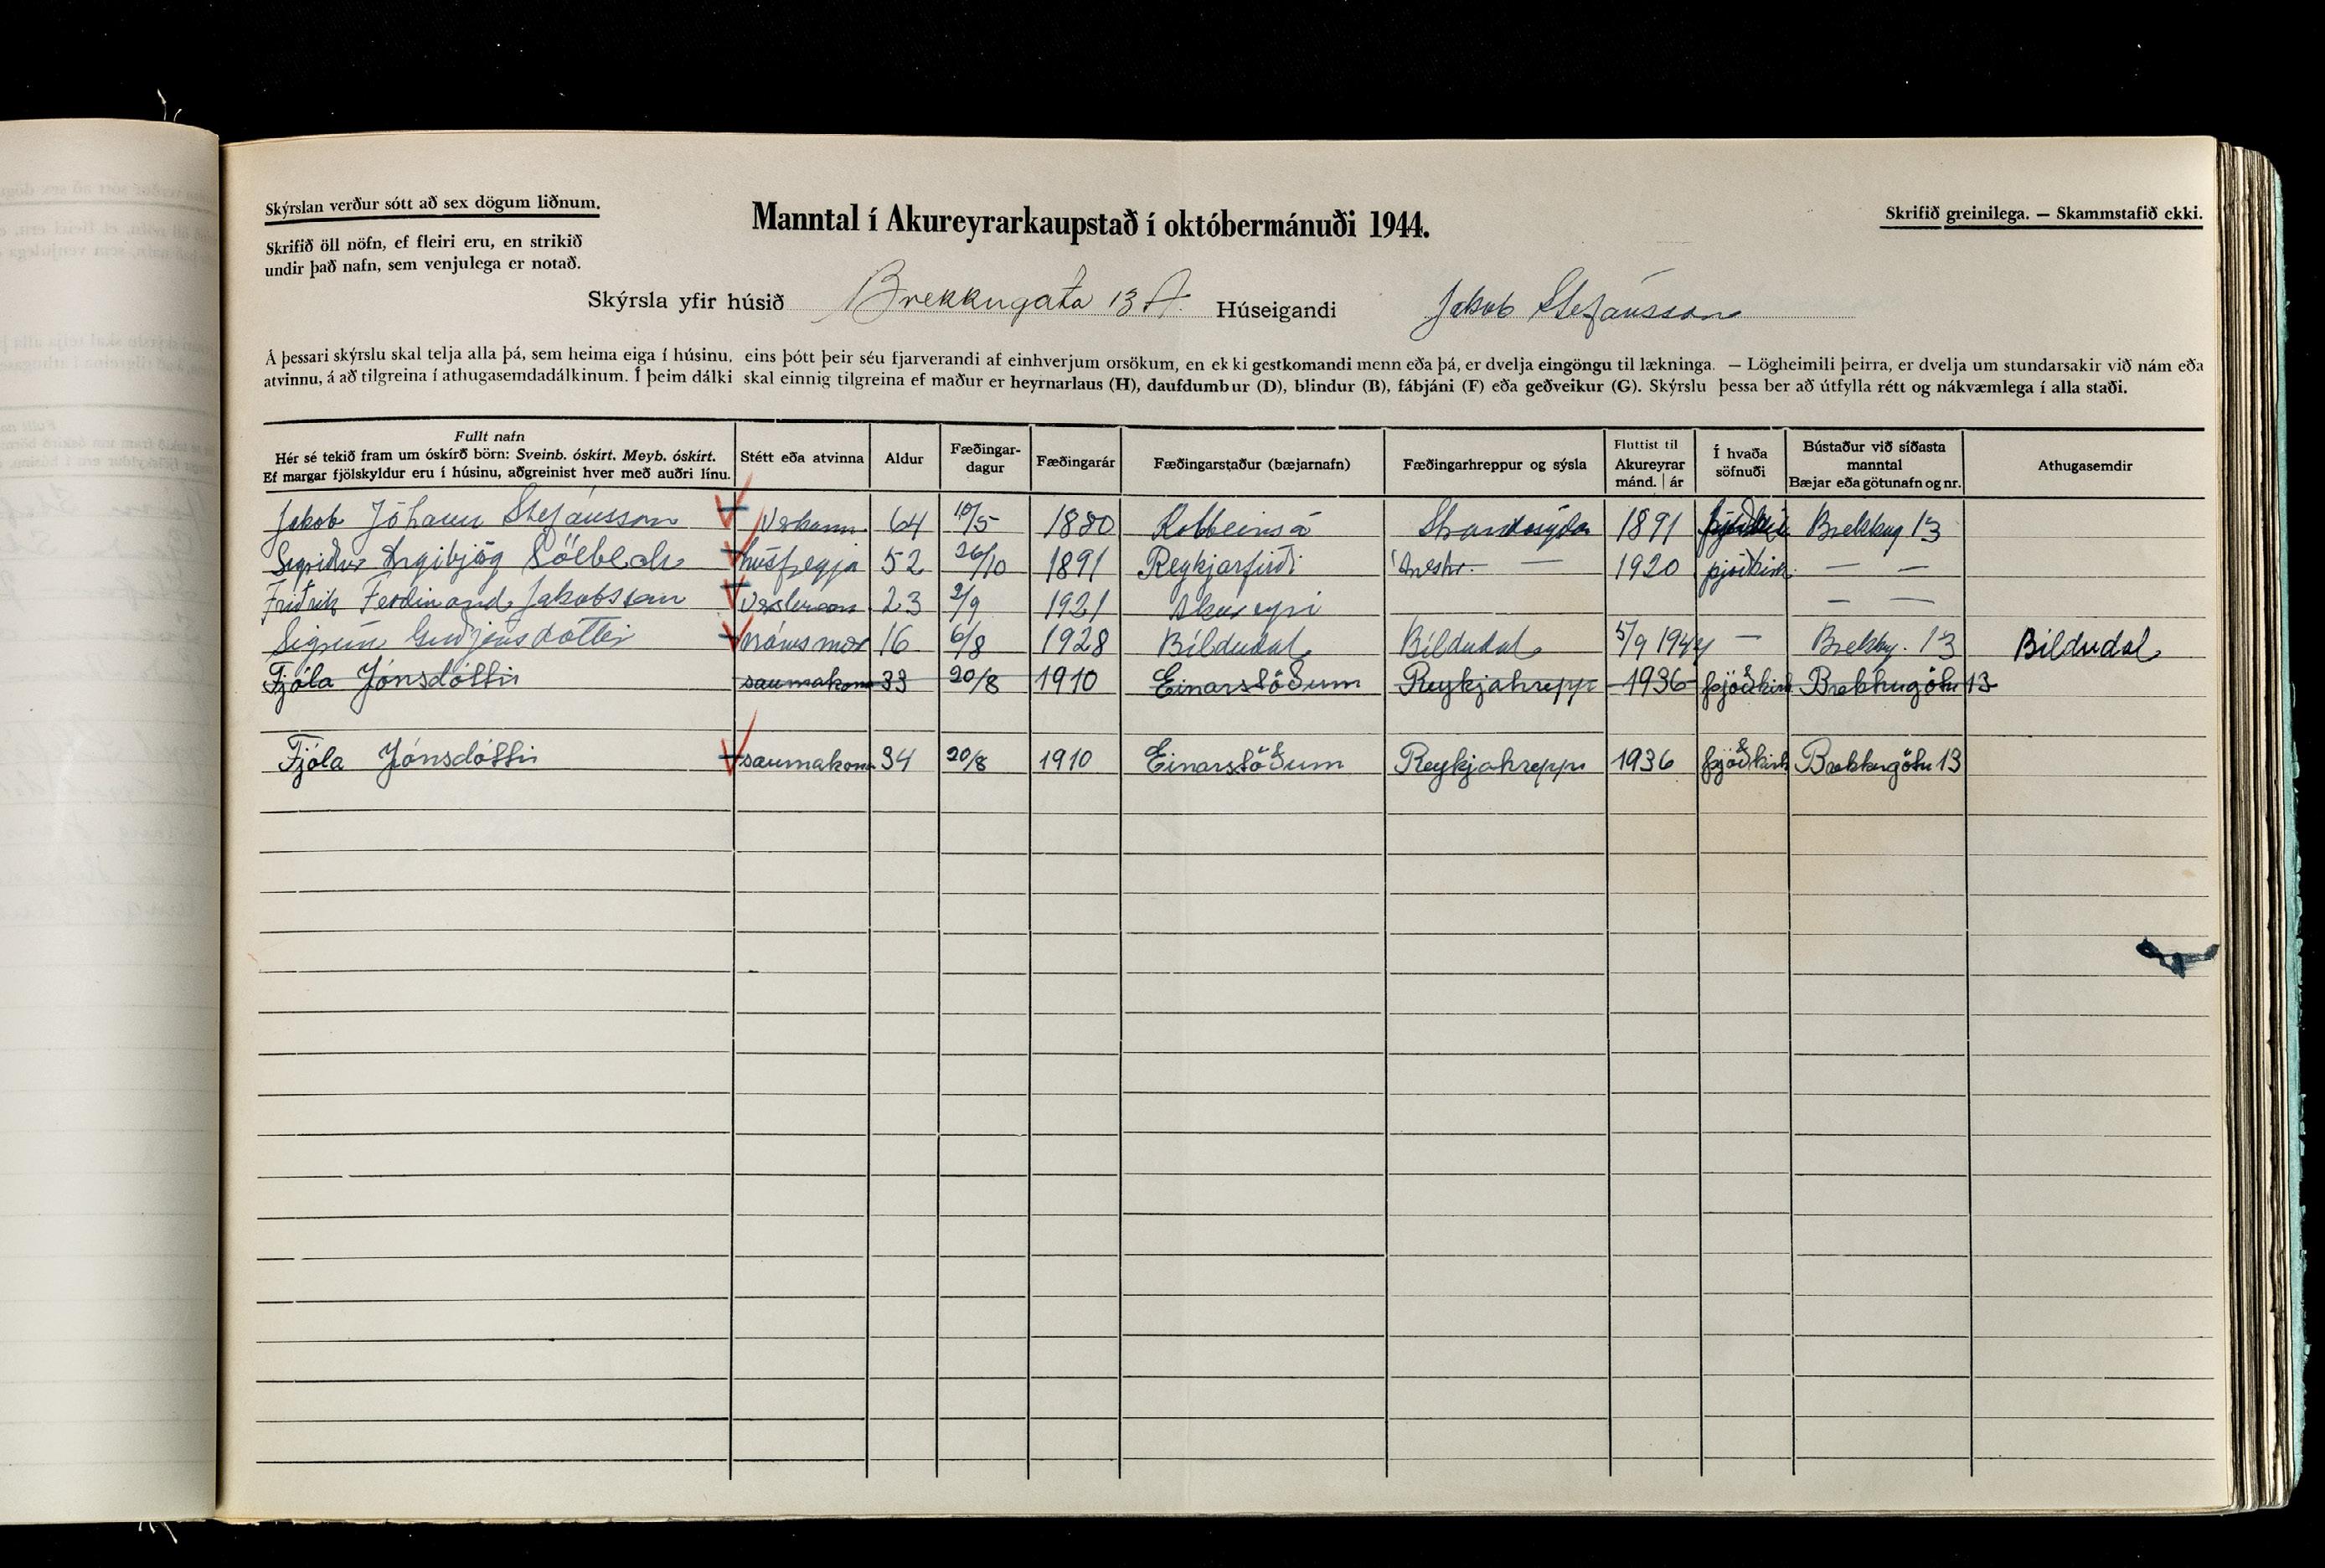 Skýrslan verður sótt að sex dögum liðnum.
Skrifið öll nöfn, ef fleiri eru, en strikið
undir það nafn, sem venjulega er notað.
Manntal í Akureyrarkaupstað í októbermánuði 1944.
Skrifið greinilega. — Skammstafið ekki.
Skýrsla yfir húsið Brekkugata 13 A. Húseigandi Jakob Stefánsson
Á þessari skýrslu skal telja alla þá, sem heima eiga í húsinu, eins þótt þeir séu fjarverandi af einhverjum orsökum, en ekki gestkomandi menn eða þá, er dvelja eingöngu til lækninga. — Lögheimili þeirra, er dvelja um stundarsakir við nám eða
atvinnu, á að tilgreina í athugasemdadálkinum. Í þeim dálki skal einnig tilgreina ef maður er heyrnarlaus (H), daufdumbur (D), blindur (B), fábjáni (F) eða geðveikur (G). Skýrslu þessa ber að útfylla rétt og nákvæmlega í alla staði.
Fullt nafn
Hér sé tekið fram um óskírð börn: Sveinb. óskírt. Meyb. óskírt.
Ef margar fjölskyldur eru í húsinu, aðgreinist hver með auðri línu.
Stétt eða atvinna
Aldur
Fæðingar-
dagur
Fæðingarár
Fæðingarstaður (bæjarnafn)
Fæðingarhreppur og sýsla
Fluttist til
Akureyrar
mánd. | ár
Í hvaða
söfnuði
Bústaður við síðasta
manntal
Bæjar eða götunafn og nr.
Athugasemdir
Jakob Jóhann Stefánsson 64 10/5 1880 Kolbeinsá Strandasýsla 1891 Brekkug 13
Sigriður Ingibjög Sölbech húsfreyja 52 26/10 1891 Reykjarfirði — 1920 þjóðkirk. — —
Friðrik Ferdinand Jakobsson 23 2/9 1921 Akureyri — —
Sigrún Guðjónsdóttir 16 6/8 1928 Bíldudal Bíldudal 5/9 1944 — Brekkug. 13 Bíldudal
Fjóla Jónsdóttir saumakona 33 20/8 1910 Einarstöðum Reykjahreppi 1936 þjóðkirk Brekkugötu 13
Fjóla Jónsdóttir saumakona 34 20/8 1910 Einarstöðum Reykjahreppi 1936 þjóðkirk Brekkugötu 13